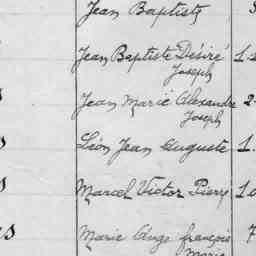 Jean Baptiste
Jean Baptiste Désiré 1.
Joseph
Jean Marie Alexandre 2
Joseph
Léon Jean Auguste 1.
Marcel Victor Pierre 1
s Marie Ange françois 7
Marie